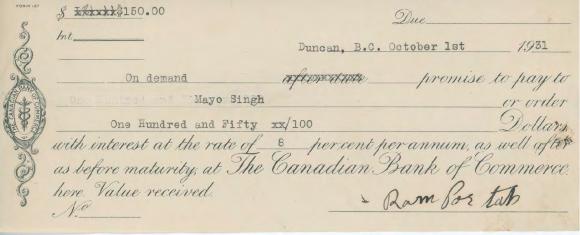 FORM 157
$ 150.00 Due
Int.
Duncan, B.C. October 1st 1931
On demand after date promise to pay to
Mayo Singh or order
One Hundred and Fifty xx/100 Dollars
with interest at the rate of 8 per cent per annum, as well after
as before maturity, at The Canadian Bank of Commerce
here. Value received.
No
THE CANADIAN BANK OF COMMERCE